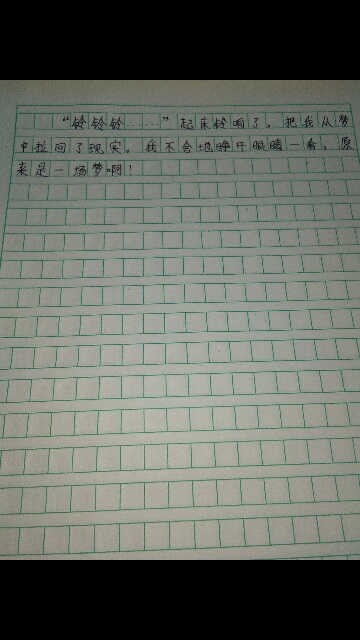 “铃铃铃……”起床铃响了。把我从梦
中拉回了现实。我不舍地睁开眼睛一看,原
来是一场梦啊!